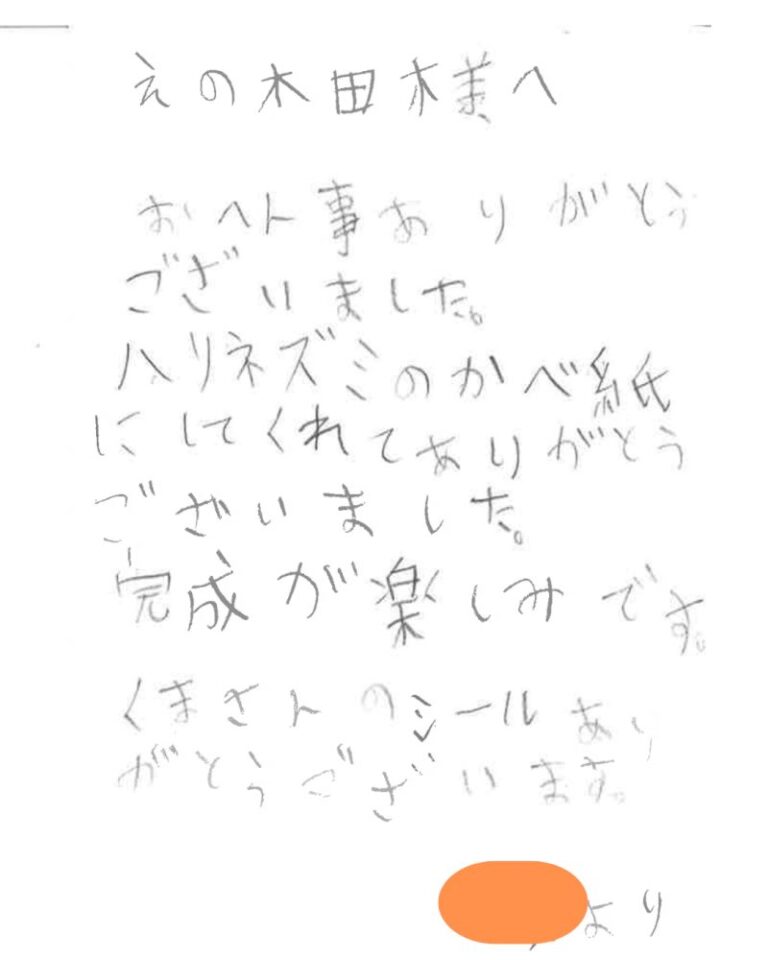 えの木田木様へ
お仕事ありがとう
ございました。
ハリネズミのかべ紙
にしてくれてありがとう
ございました。
完成が楽しみです。
くまさんのシールあり
がとうございます。
より